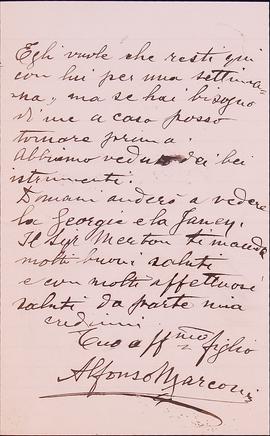 Egli vuole che resti qui
con lui per una settima-
na, ma se hai bisogno
di me a casa posso
tornare prima.
Abbiamo veduto dei bei
istrumenti.
Domani anderò a vedere
la Georgie e la Janey.
Il Sigr Merton ti manda
molti buoni saluti
e con molti affettuosi
saluti da parte mia
credimi
Tuo affmo figlio
Alfonso Marconi